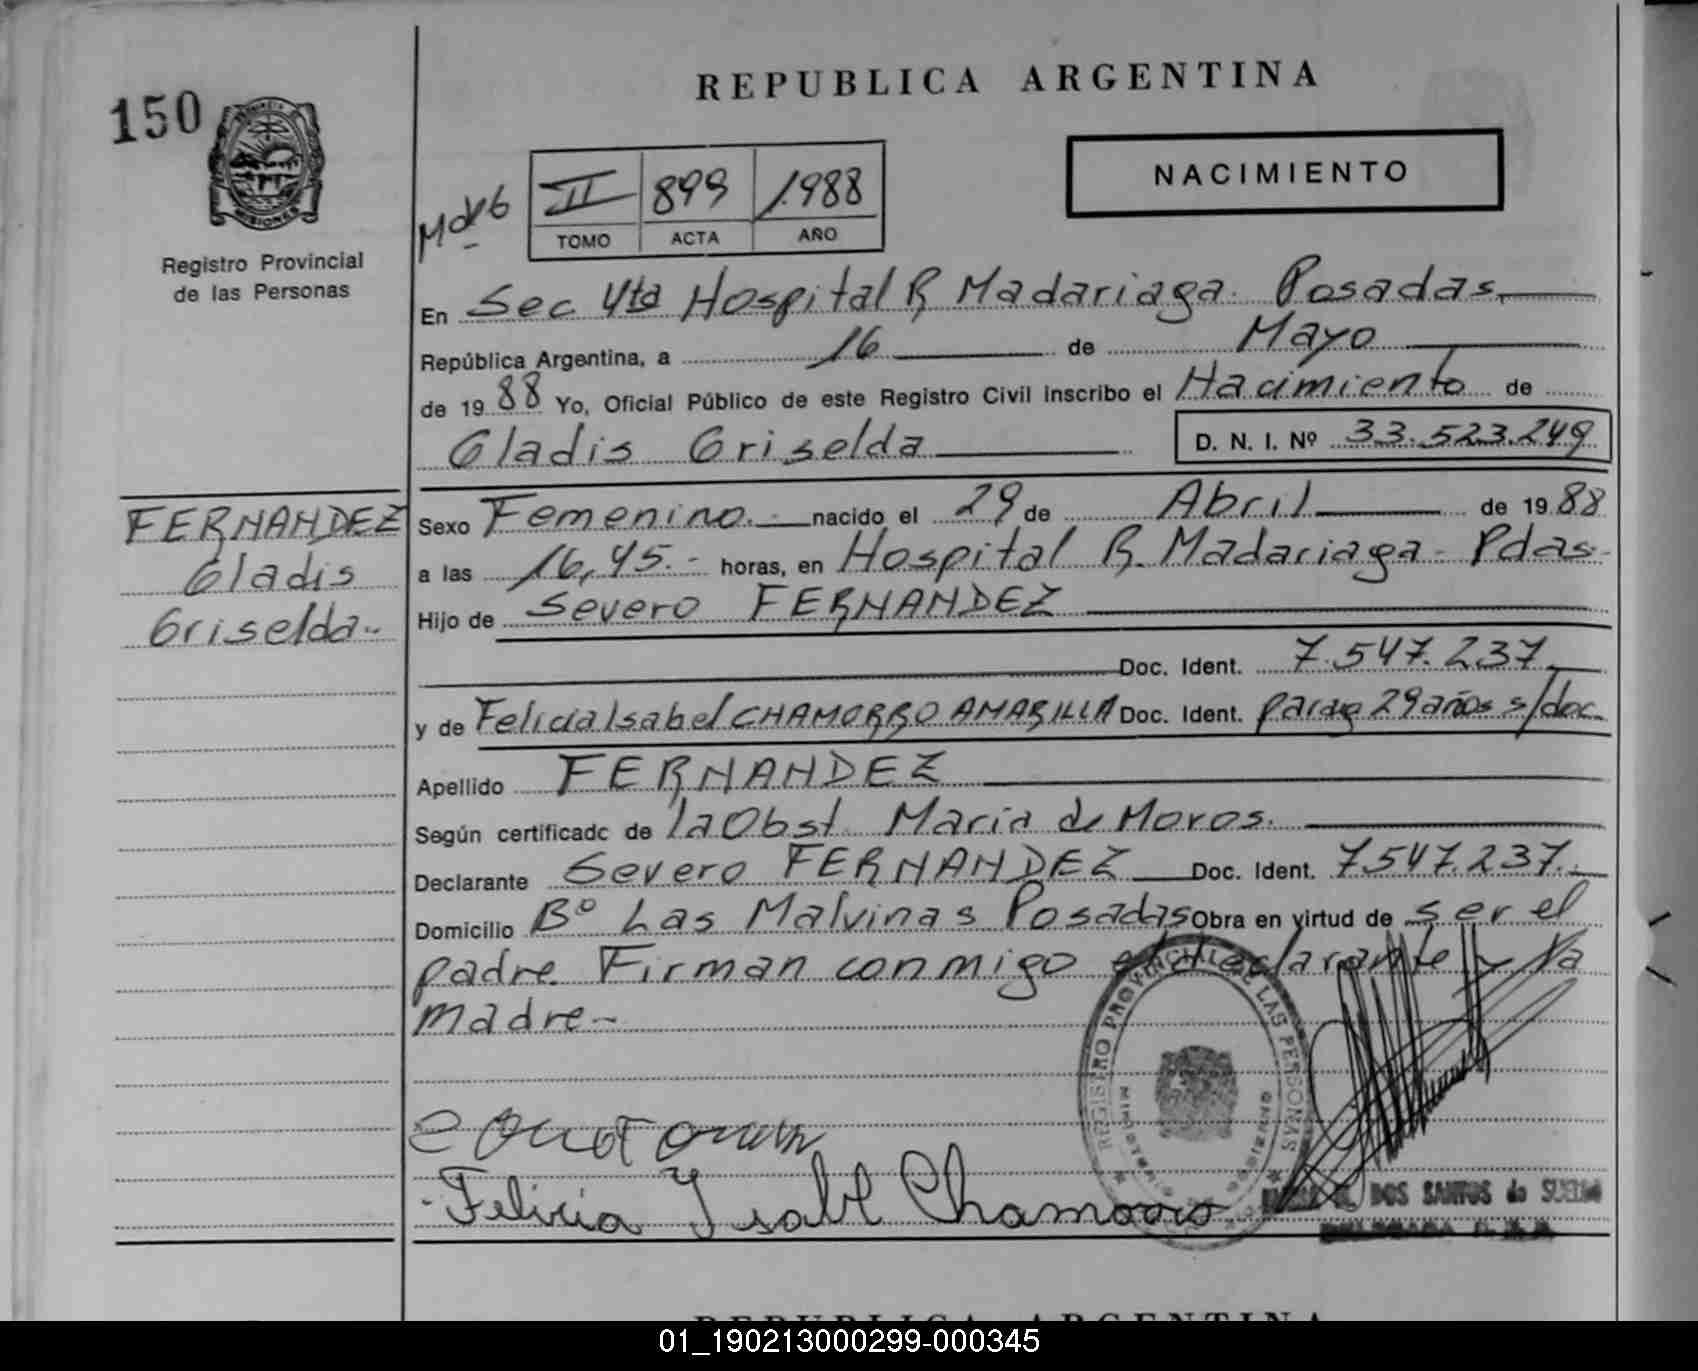 REPUBLICA ARGENTINA
150
NACIMIENTO
II 899 1988
TOMO ACTA AÑO
MISIONES
Registro Provincial
de las Personas
En Sec 4ta Hospital R Madariaga. Posadas.
República Argentina, a 16 de Mayo
de 1988 Yo, Oficial Público de este Registro Civil inscribo el Nacimiento de
Gladis Griselda D. N. I. Nº 33.523.249
FERNANDEZ
Gladis
Griselda.-
Sexo Femenino.- nacido el 29 de Abril de 1988
a las 16,45.- horas, en Hospital R. Madariaga- Pdas-
Hijo de Severo FERNANDEZ
Doc. Ident. 7.547.237
y de Felicia Isabel CHAMORRO AMARILLA Doc. Ident. parag 29 años s/doc.
Apellido FERNANDEZ
Según certificado de la Obst Maria de Moros.
Declarante Severo FERNANDEZ Doc. Ident. 7.547.237.
Domicilio Bº Las Malvinas Posadas Obra en virtud de ser el
padre. Firman conmigo el declarante y la
madre-
REGISTRO PROVINCIAL DE LAS PERSONAS
Felicia Isabel Chamorro
DOS SANTOS de
REPUBLICA ARGENTINA
01_190213000299-000345